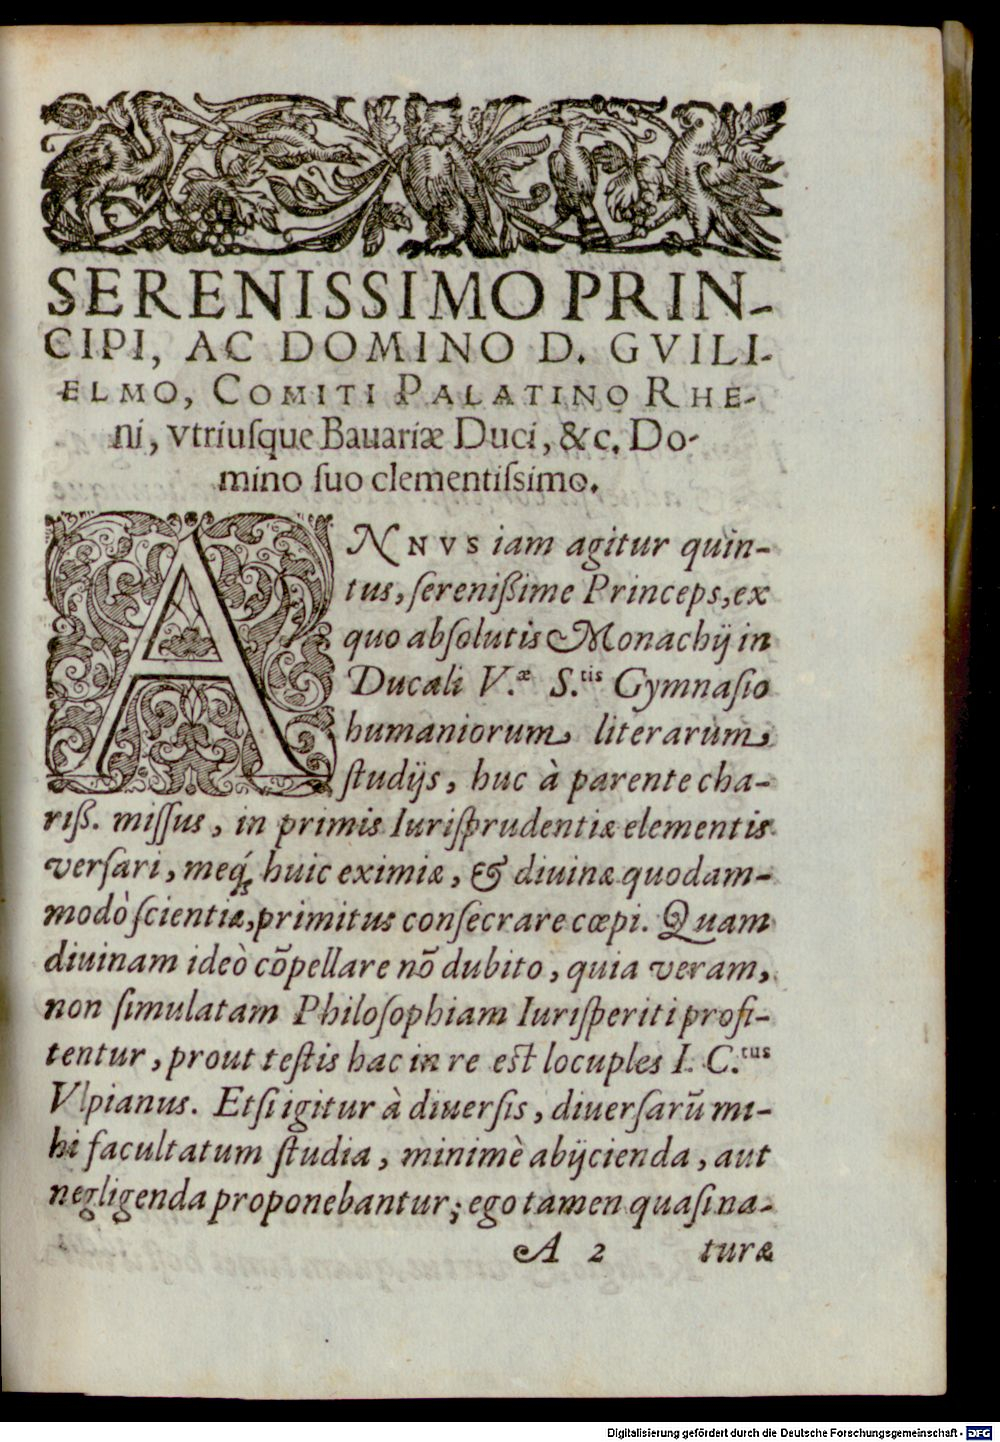 SERENISSIMO PRIN-
CIPI, AC DOMINO D. GVILI-
ELMO, COMITI PALATINO RHE-
ni, vtriuſque Bauariæ Duci, &c. Do-
mino ſuo clementiſsimo.
ANNVS iam agitur quin-
tus, ſereniſsime Princeps, ex
quo abſolutis Monachij in
Ducali V.æ S.tis Gymnaſio
humaniorum literarum
ſtudijs, huc à parente cha-
riſs. miſſus, in primis Iuriſprudentiæ elementis
verſari, meq́; huic eximiæ, & diuinæ quodam-
modò ſcientiæ, primitus conſecrare cœpi. Quam
diuinam ideò cõpellare nõ dubito, quia veram,
non ſimulatam Philoſophiam Iuriſperiti profi-
tentur, prout teſtis hac in re eſt locuples I. C.tus
Vlpianus. Etſi igitur à diuerſis, diuerſarũ mi-
hi facultatum ſtudia, minimè abijcienda, aut
negligenda proponebantur; ego tamen quaſi na-
A 2 turæ
Digitalisierung gefördert durch die Deutsche Forschungsgemeinschaft - DFG